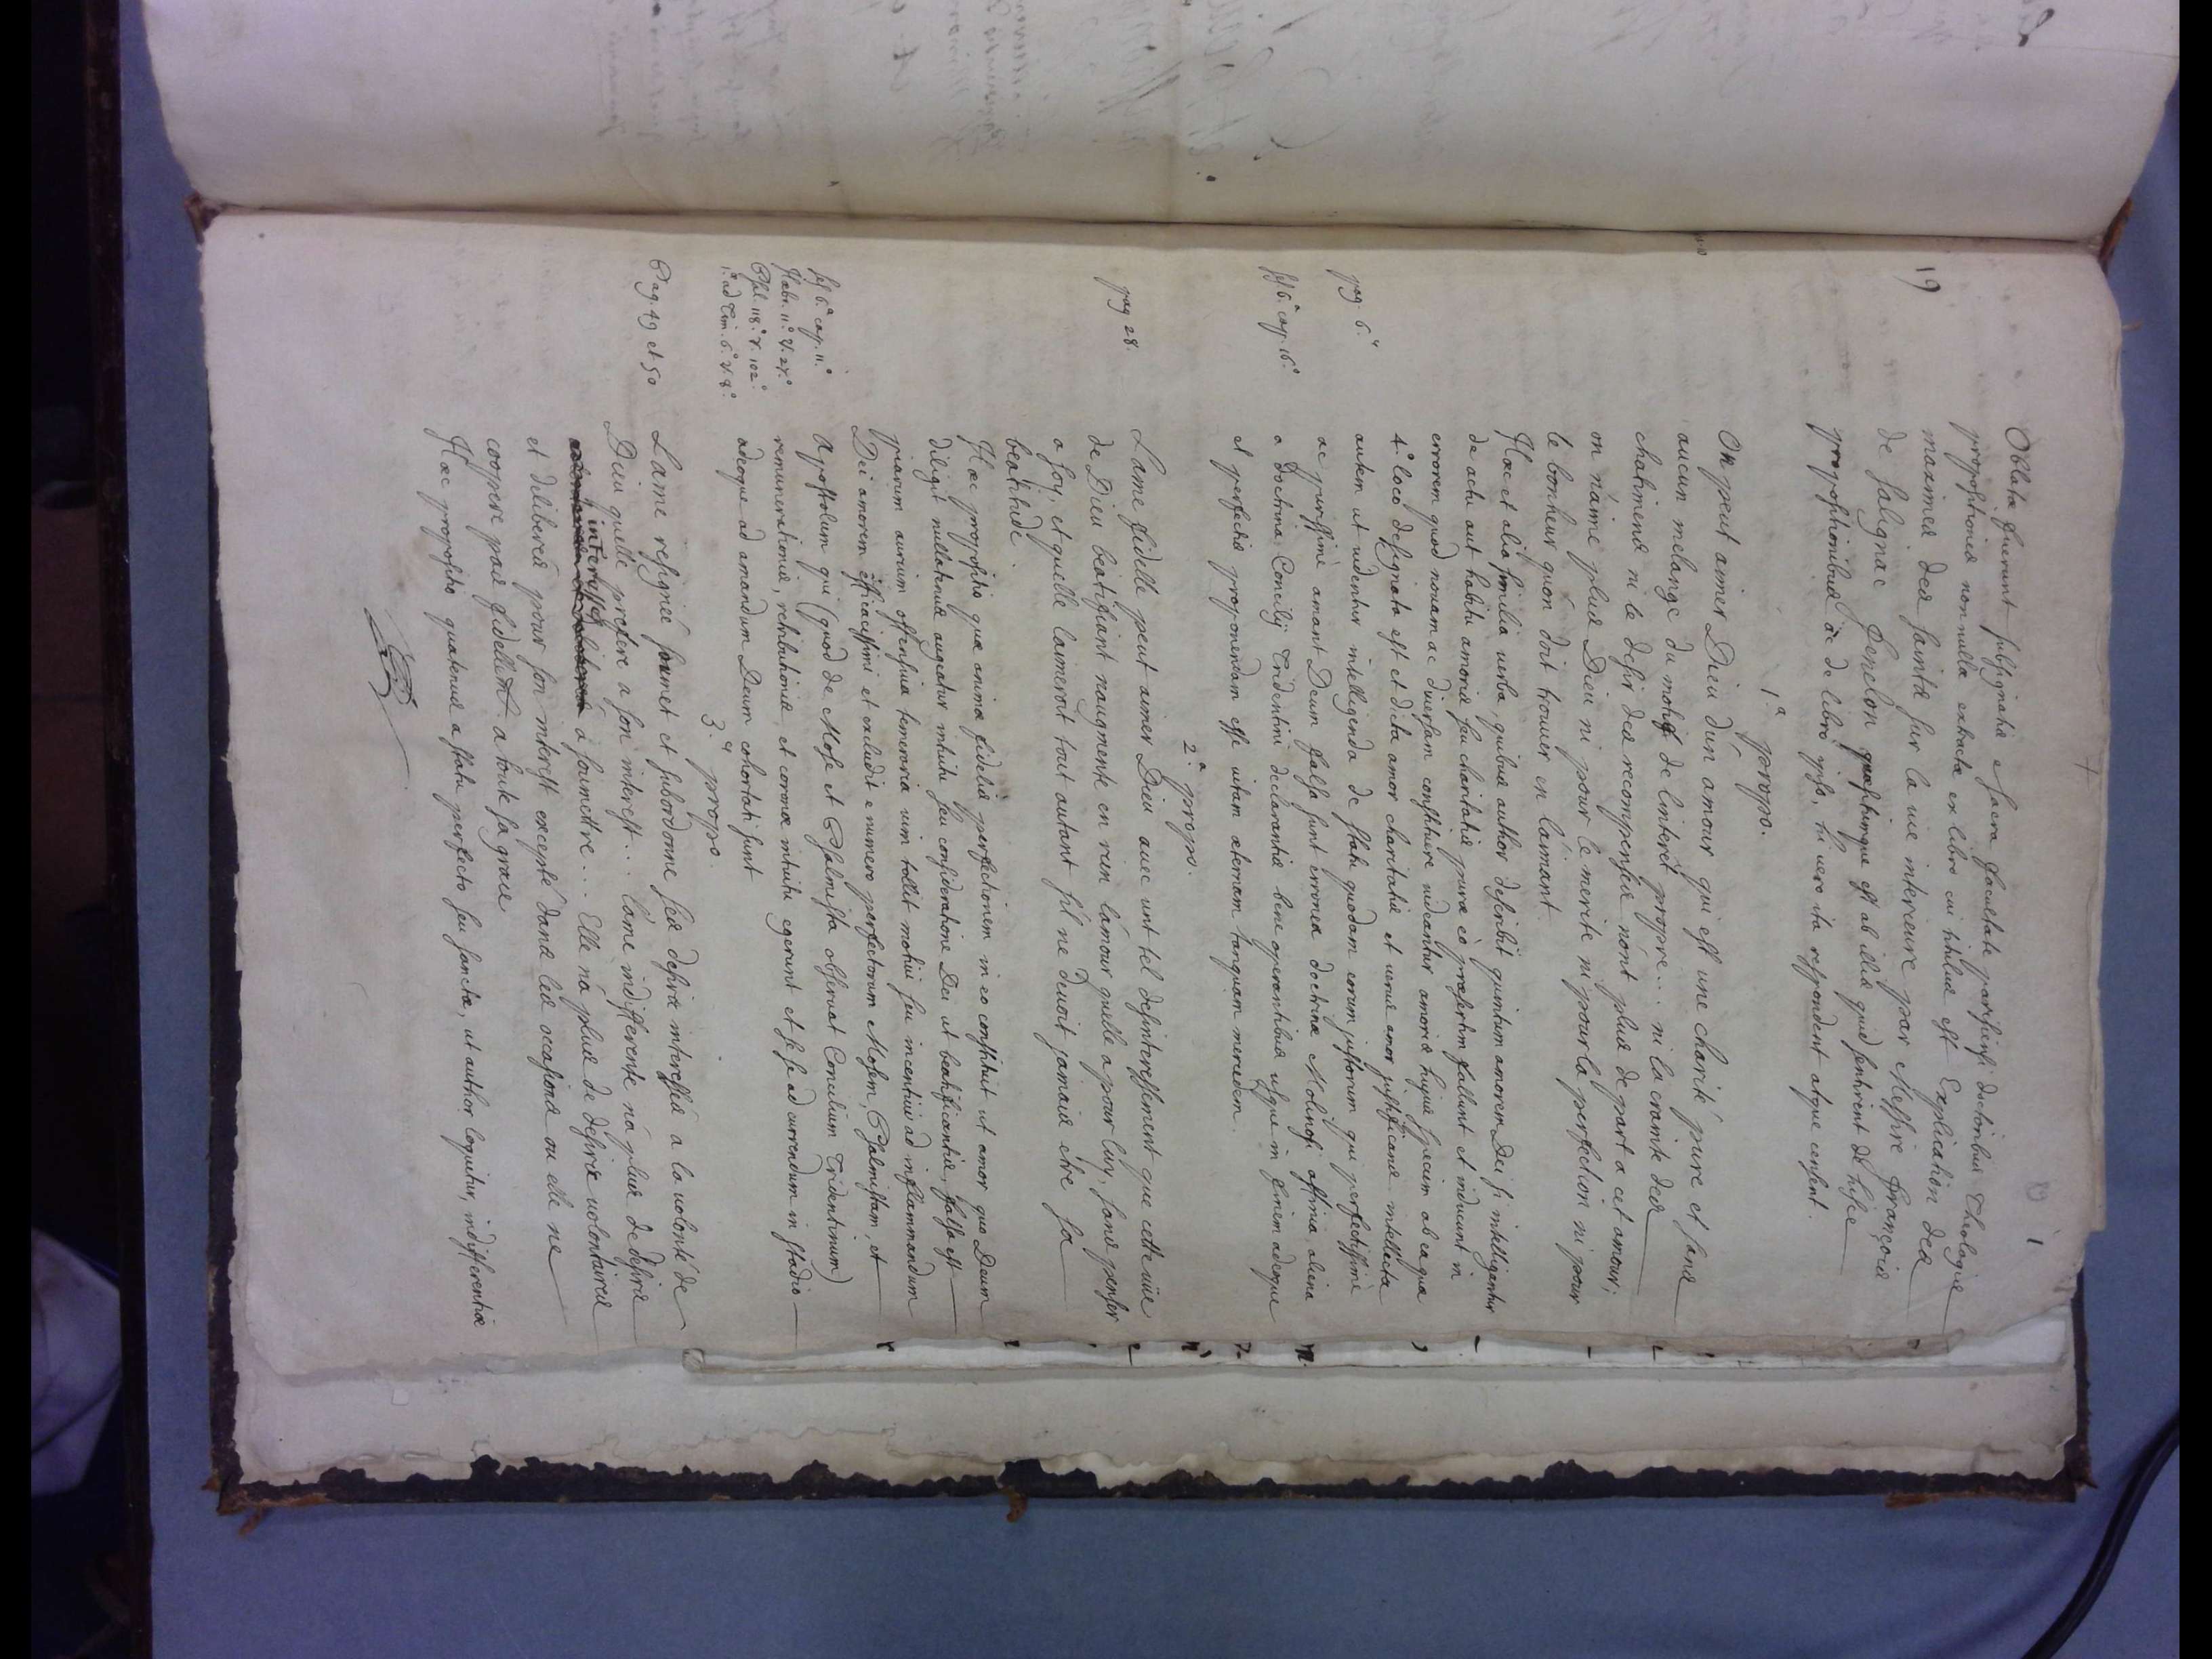 19
1
Oblatæ fuerunt subsignatis e sacra facultate parisiensi doctoribus Theologis
propositiones nonnullæ extractæ ex libro cui titulus est Explication des
maximes des saints sur la vie interieure par Messire françois
de Salignac fenelon quæsitumque est ab illis quid sentirent de hisce
propositionibus ac de libro ipso, hi vero ita respondent atque censent.
1.ª propo.
pag 6.ª
On peut aimer Dieu d'un amour qui est une charité pure et sans
aucun melange du motif de l'interet propre... ni la crainte des
chatimens ni le desir des recompenses n'ont plus de part a cet amour;
on n'aime plus Dieu ni pour le merite ni pour la perfection ni pour
le bonheur qu'on doit trouver en l'aimant.
Hæc et alia similia verba quibus author describit quintum amorem Dei si intelligantur
de actu aut habitu amoris seu charitatis puræ eo præsertim fallunt et inducunt in
errorem quod novam ac diversam constituere videantur amoris hujus speciem ab ea quæ
4.º loco designata est et dicta amor charitatis et verus amor justificans. intellecta
autem ut videntur intelligenda de statu quodam eorum justorum qui perfectissime
ac purissime amant Deum falsa sunt erronea doctrinæ Molinosi affinia, aliena
sess 6.ª cap. 16.º
a doctrina Concilij Tridentini declarantis bene operantibus usque in finem adeoque
et perfectis proponendam esse vitam æternam tanquam mercedem.
2.ª propo.
pag 28.
L'ame fidelle peut aimer Dieu avec un tel desinteressement que cette vüe
de Dieu beatifiant n'augmente en rien l'amour quelle a pour luy, sans penser
a soy, et quelle l'aimeroit tout autant s'il ne devoit jamais etre sa
beatitude.
Hæc propositio quæ animæ fidelis perfectionem in eo constituit ut amor quo Deum
diligit nullatenus augeatur intuitu seu consideratione Dei ut beatificantis, falsa est
piarum aurium offensiva temeraria vim tollit motivi seu incentivi ad inflammandum
Dei amorem efficacissimi et excludit e numero perfectorum Mosem, Psalmistam, et
sess 6.ª cap. 11.º
Hæbr. 11.º v. 26.º
Psal. 118.º v. 102.º
1.ª ad Tim. 6.º v. 8.º
Apostolum qui (quod de Mose et Psalmista observat Concilium Tridentinum)
remunerationis, retributionis et coronæ intuitu egerunt et sese ad currendum in stadio
adeoque ad amandum Deum cohortati sunt
3.ª propo.
Pag. 49 et 50
L'ame resignée soumet et subordonne ses desirs interessés a la volonté de
Dieu quelle prefere a son interest... l'ame indifferente n'a plus de desirs
interessés a soumettre... Elle n'a plus de desirs volontaires
et deliberés pour son interest excepté dans les occasions ou elle ne
coopere pas fidellemt. a toute sa grace
Hæc propositio quatenus a statu perfecto seu sanctæ, ut author loquitur, indifferentiæ